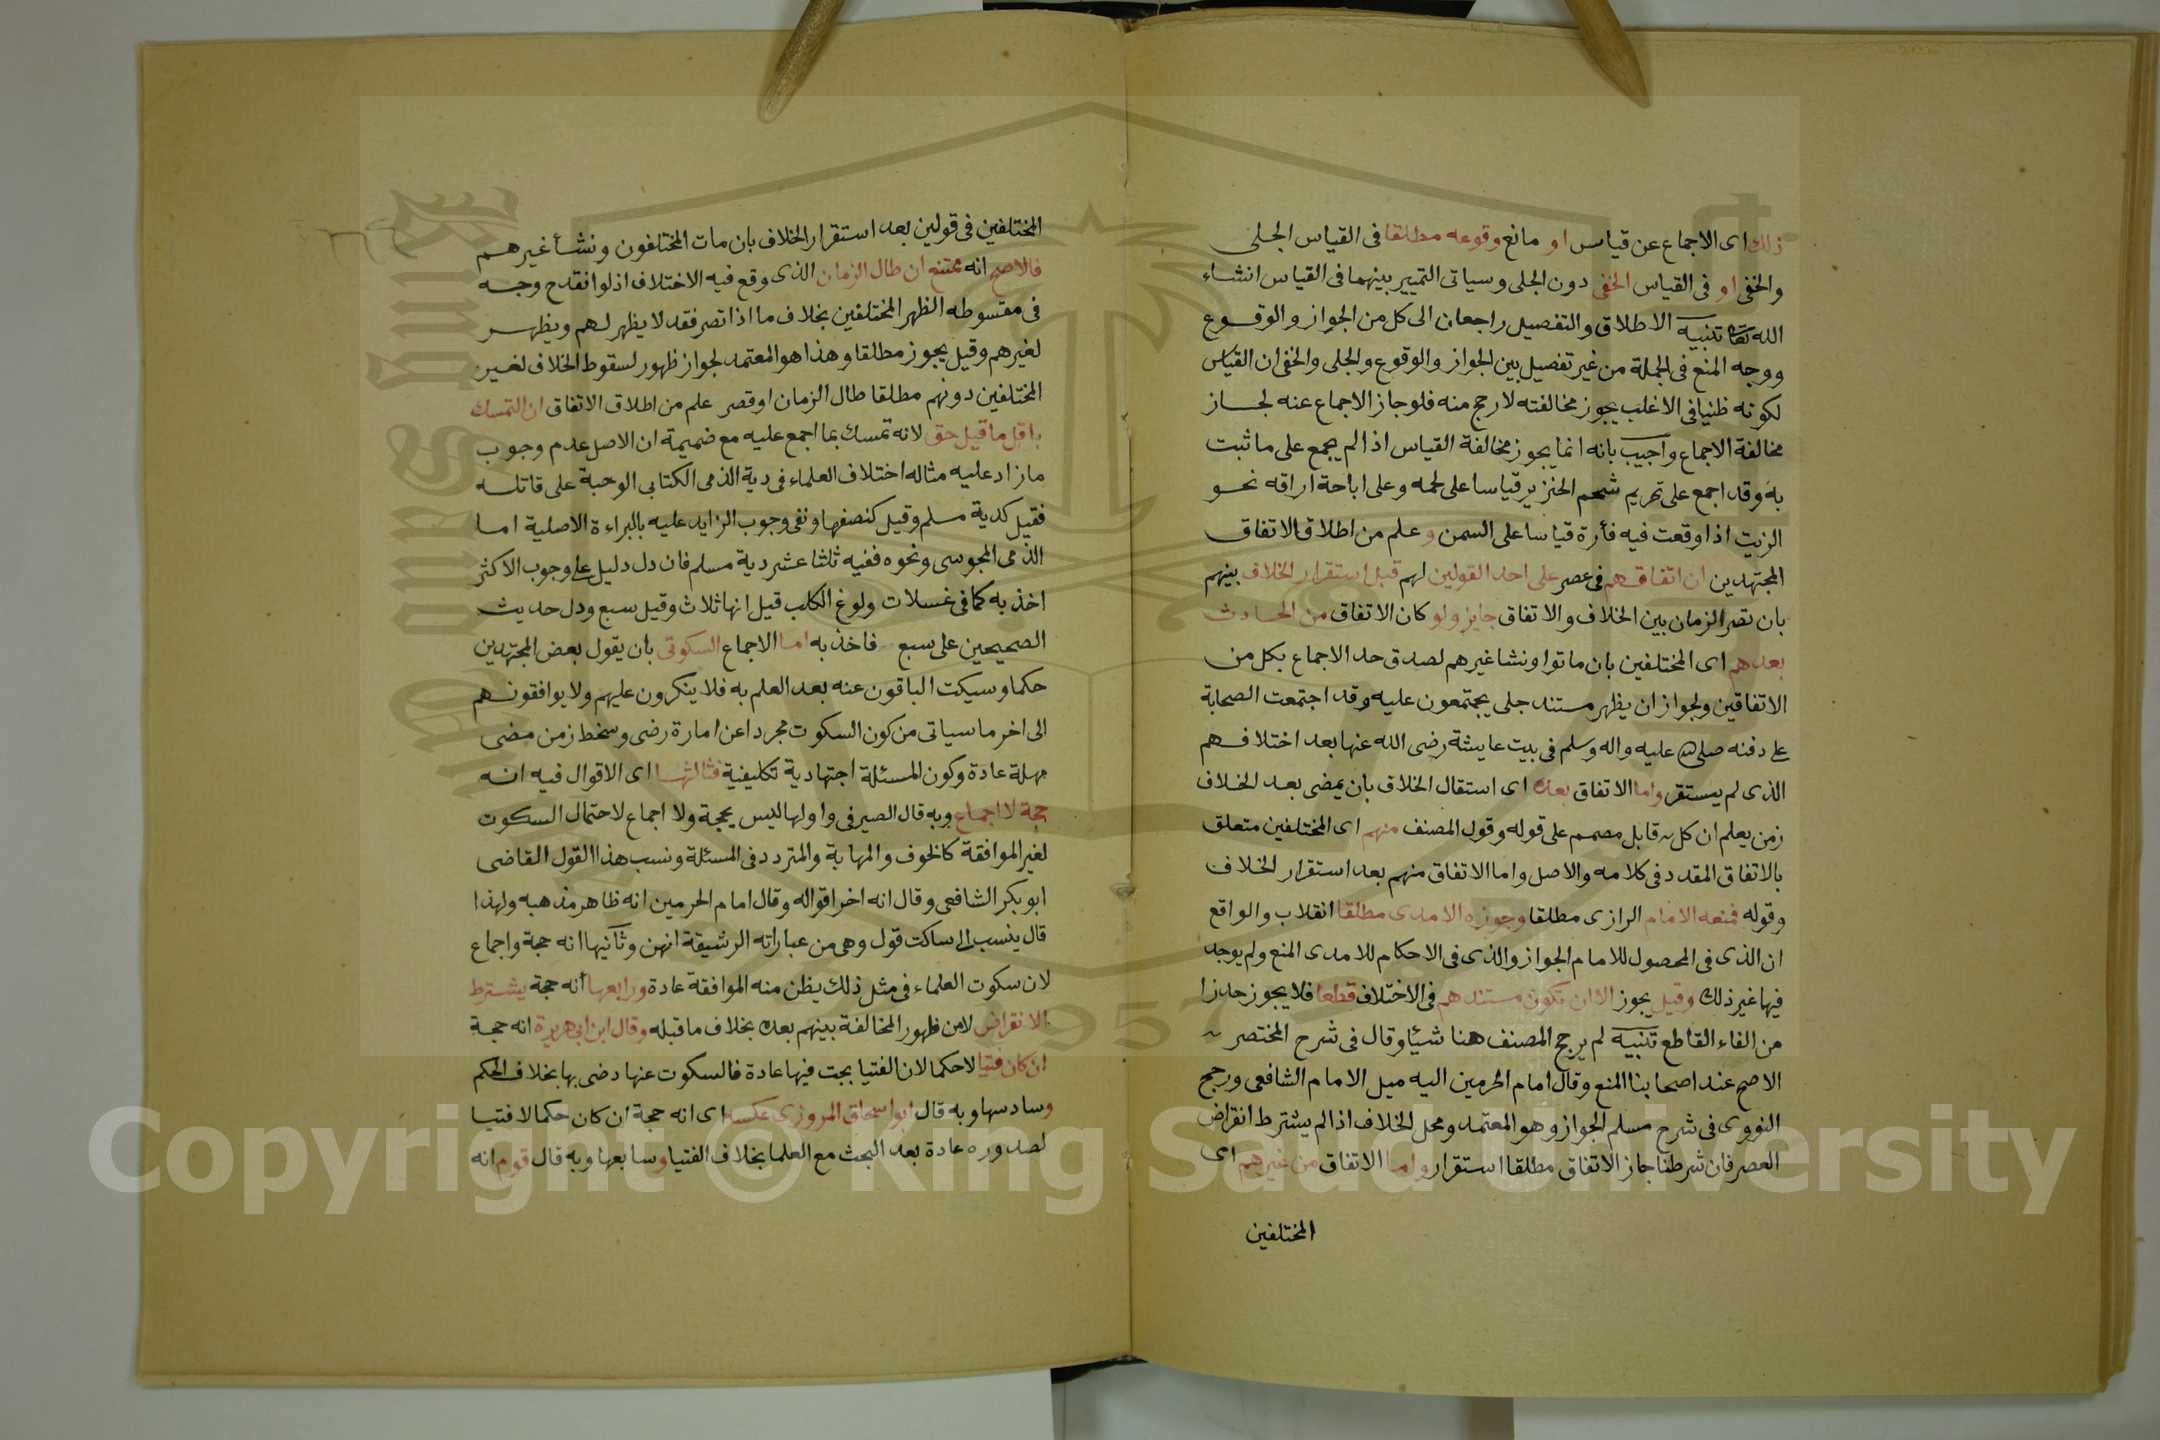 ذلك اى الاجماع عن قياس او مانع وقوعه مطلقا فى القياس الجلى
والخفى او فى القياس الخفى دون الجلى وسياتى التمييز بينهما فى القياس انشاء
الله تعا تنبيه الاطلاق والتفصيل راجعان الى كل من الجواز والوقوع
ووجه المنع فى الجملة من غير تفصيل بين الجواز والوقوع والجلى والخفى ان القياس
لكونه ظنيا فى الاغلب يجوز مخالفته لارجح منه فلو جاز الاجماع عنه لجاز
مخالفة الاجماع واجيب بانه انما يجوز مخالفة القياس اذا لم يجمع على ما ثبت
به وقد اجمع على تحريم شحم الخنزير قياسا على لحمه وعلى اباحة اراقه نحو
الزيت اذا وقعت فيه فأرة قياسا على السمن وعلم من اطلاق الاتفاق
المجتهدين ان اتفاقهم فى عصر على احد القولين لهم قبل استقرار الخلاف بينهم
بان قصر الزمان بين الخلاف والاتفاق جايز ولو كان الاتفاق من الحادث
بعدهم اى المختلفين بان ماتوا ونشا غيرهم لصدق حد الاجماع بكل من
الاتفاقين ولجواز ان يظهر مستند جلى يجتمعون عليه وقد اجتمعت الصحابة
على دفنه صلى الله عليه واله وسلم فى بيت عايشة رضى الله عنها بعد اختلافهم
الذى لم يستقر واما الاتفاق بعده اى استقال الخلاف بان يمضى بعد الخلاف
زمن يعلم ان كل قابل مصمم على قوله وقول المصنف منهم اى المختلفين متعلق
بالاتفاق المقدد فى كلامه والاصل واما الاتفاق منهم بعد استقرار الخلاف
وقوله فمنعه الامام الرازى مطلقا وجوزه الامدى مطلقا انقلاب والواقع
ان الذى فى المحصول للامام الجواز والذى فى الاحكام للامدى المنع ولم يوجد
فيها غير ذلك وقيل يجوز الا ان تكون مستندهم فى الاختلاف قطعا فلا يجوز حدزا
من الفاء القاطع تنبيه لم يرجح المصنف هنا شيئا وقال فى شرح المختصر
الاصح عند اصحابنا المنع وقال امام الحرمين اليه ميل الامام الشافعى ورجح
النووى فى شرح مسلم الجواز وهو المعتمد ومحل الخلاف اذا لم يشترط انقراض
العصر فان شرطنا جاز الاتفاق مطلقا استقرار واما الاتفاق من غيرهم اى
المختلفين
المختلفين فى قولين بعد استقرار الخلاف بان مات المختلفون ونشأ غيرهم
فالاصح انه ممتنع ان طال الزمان الذى وقع فيه الاختلاف اذ لو انقدح وجه
فى مقسوطه الظهر المختلفين بخلاف ما اذا قصر فقد لا يظهر لهم ويظهر
لغيرهم وقيل يجوز مطلقا وهذا هو المعتمد لجواز ظهور لسقوط الخلاف لغير
المختلفين دونهم مطلقا طال الزمان او قصر علم من اطلاق الاتفاق ان التمسك
باقل ما قيل حق لانه تمسك بما اجمع عليه مع ضميمة ان الاصل عدم وجوب
ما زاد عليه مثاله اختلاف العلماء فى دية الذمى الكتابى الوحبة على قاتله
فقيل كدية مسلم وقيل كنصفها ونفى وجوب الزايد عليه بالبراءة الاصلية اما
الذمى المجوسى ونحوه ففيه ثلثا عشر دية مسلم فان دل دليل على وجوب الاكثر
اخذ به كما فى غسلات ولوغ الكلب قيل انها ثلاث وقيل سبع ودل حديث
الصحيحين على سبع فاخذ به اما الاجماع السكوتى بان يقول بعض المجتهدين
حكما وسيكت الباقون عنه بعد العلم به فلا ينكرون عليهم ولا يوافقونهم
الى اخر ما سياتى من كون السكوت مجردا عن امارة رضى وسخط زمن مضى
مهلة عادة وكون المسئلة اجتهادية تكليفية فثالثها اى الاقوال فيه انه
حجة لا اجماع وبه قال الصيرفى واولها ليس بحجة ولا اجماع لاحتمال السكوت
لغير الموافقة كالخوف والمهابة والمتردد فى المسئلة ونسب هذا القول القاضى
ابو بكر الشافعى وقال انه اخر اقواله وقال امام الحرمين انه ظاهر مذهبه ولهذا
قال ينسب الى ساكت قول وهى من عباراته الرشيقة انهن وثانيها انه حجة واجماع
لان سكوت العلماء فى مثل ذلك يظن منه الموافقة عادة ورابعها أنه حجة يشترط
الانقراض لامن ظهور المخالفة بينهم بعده بخلاف ما قبله وقال ابن ابى هريرة انه حجة
ان كان فتيا لا حكما لان الفتيا بجت فيها عادة فالسكوت عنها دضى بها بخلاف الحكم
وسادسها وبه قال ابو اسحاق المروزى عكسه اى انه حجة ان كان حكما لا فتيا
لصدوره عادة بعد البحث مع العلما بخلاف الفتيا وسابعها وبه قال قوم انه
Copyright © King Saud University
1957